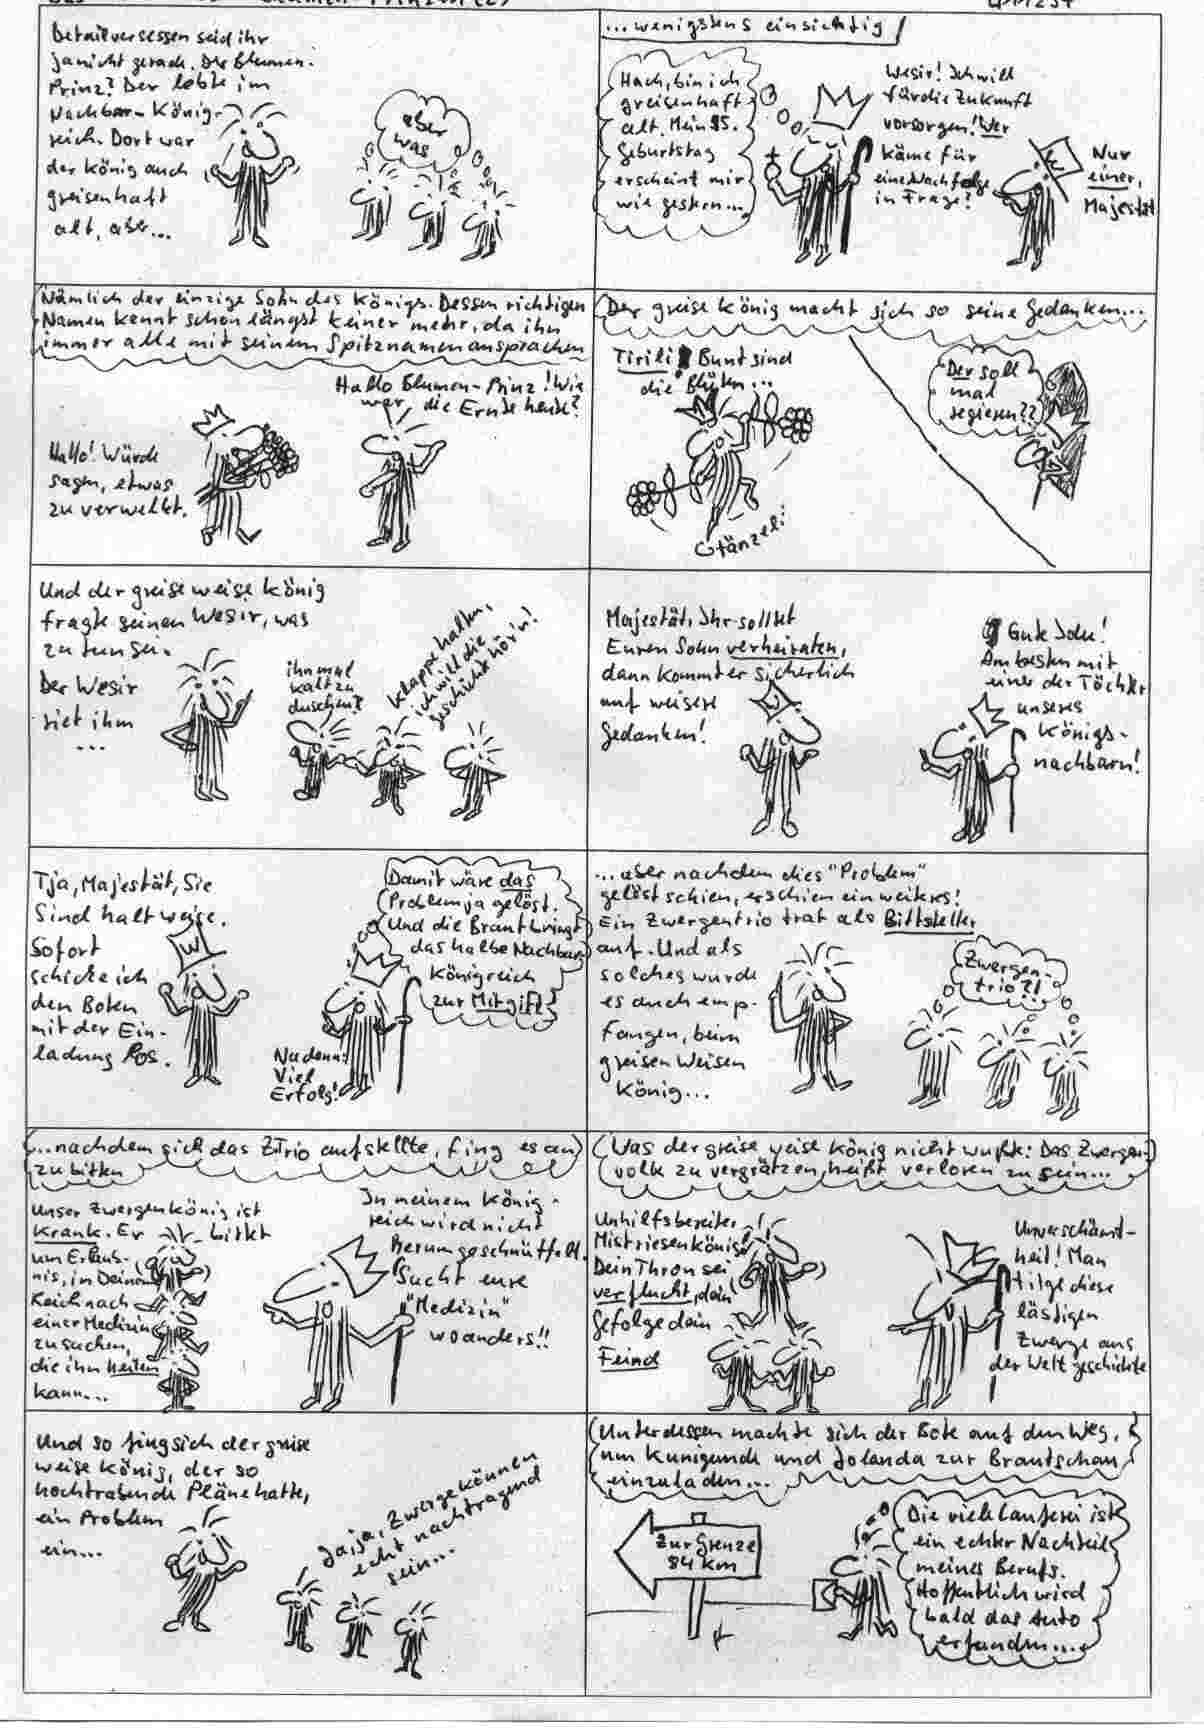 Detailversessen seid ihr
ja nicht gerade. Der Blumen-
Prinz? Der lebte im
Nachbar-König-
reich. Dort war
der König auch
greisenhaft
alt, aber...
aber
was
...wenigstens einsichtig
Hach, bin ich
greisenhaft
alt. Mein 95.
Geburtstag
erscheint mir
wie gestern...
Wesir! Ich will
für die Zukunft
vorsorgen! Wer
käme für
eine Nachfolge
in Frage?
Nur
einer,
Majestät
Nämlich der einzige Sohn des Königs. Dessen richtigen
Namen kennt schon längst keiner mehr, da ihn
immer alle mit seinem Spitznamen ansprachen
Hallo Blumen-Prinz! Wie
war die Ernte heute?
Hallo! Würde
sagen, etwas
zu verwelkt.
Der greise König macht sich so seine Gedanken...
Tirili! Bunt sind
die Blüten...
tänzel!
Der soll
mal
regieren??
Und der greise weise König
fragte seinen Wesir, was
zu tun sei.
Der Wesir
riet ihm
...
ihn mal
kalt zu
duschen?
Klappe halten,
ich will die
Geschichte hör'n!
Majestät, Ihr solltet
Euren Sohn verheiraten,
dann kommt er sicherlich
auf weisere
Gedanken!
Gute Idee!
Am besten mit
einer der Töchter
unseres
Königs-
nachbarn!
Tja, Majestät, Sie
sind halt weise.
Sofort
schicke ich
den Boten
mit der Ein-
ladung los.
W
Damit wäre das
Problem ja gelöst.
Und die Braut bringt
das halbe Nachbar-
Königreich
zur Mitgift
Na denn:
Viel
Erfolg!
...aber nachdem dies "Problem"
gelöst schien, erschien ein weiteres!
Ein Zwergentrio trat als Bittsteller
auf. Und als
solches wurde
es auch emp-
fangen, beim
greisen weisen
König...
Zwergen-
trio?!
...nachdem sich das ZTrio aufstellte, fing es an
zu bitten
Unser Zwergenkönig ist
krank. Er bittet
um Erlaub-
nis, in Deinem
Reich nach
einer Medizin
zu suchen,
die ihn heilen
kann...
In meinem König-
reich wird nicht
herumgeschnüffelt.
Sucht eure
"Medizin"
woanders!!
Was der greise weise König nicht wußte: Das Zwergen-
volk zu vergrätzen, heißt verloren zu sein...
Unhilfsbereiter
Mistriesenkönig!
Dein Thron sei
verflucht, dein
Gefolge dein
Feind
Unverschämt-
heit! Man
tilge diese
lästigen
Zwerge aus
der Weltgeschichte
Und so fing sich der greise
weise König, der so
hochtrabende Pläne hatte,
ein Problem
ein...
Jaja, Zwerge können
echt nachtragend
sein...
Unterdessen machte sich der Bote auf den Weg,
um Kunigunde und Jolanda zur Brautschau
einzuladen...
Zur Grenze
84 km
Die viele Lauferei ist
ein echter Nachteil
meines Berufs.
Hoffentlich wird
bald das Auto
erfunden...